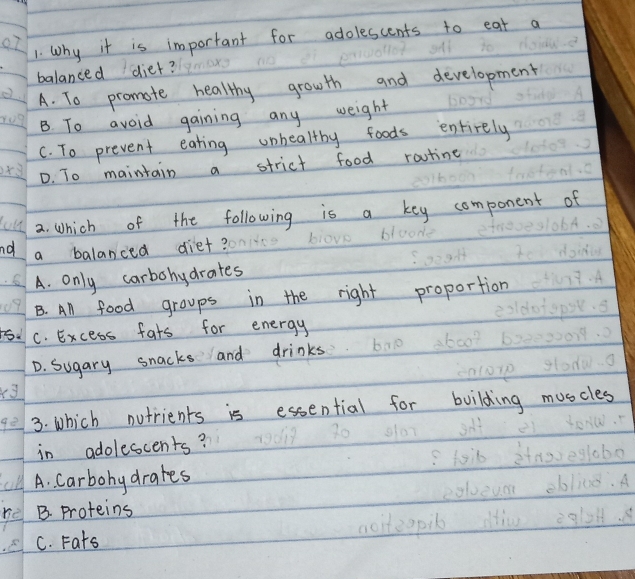 1. Why it is important for adolescents to eat a
balanced diet?
A. To promote healthy growth and development
B. To avoid gaining any weight
C. To prevent eating unhealthy foods entirely
D. To maintain a strict food routine
2. Which of the following is a key component of
a balanced diet?
A. Only carbohydrates
B. All food groups in the right proportion
C. Excess fats for energy
D. Sugary snacks and drinks
3. Which nutrients is essential for building muscles
in adolescents?
A. Carbohydrates
B. Proteins
C. Fats